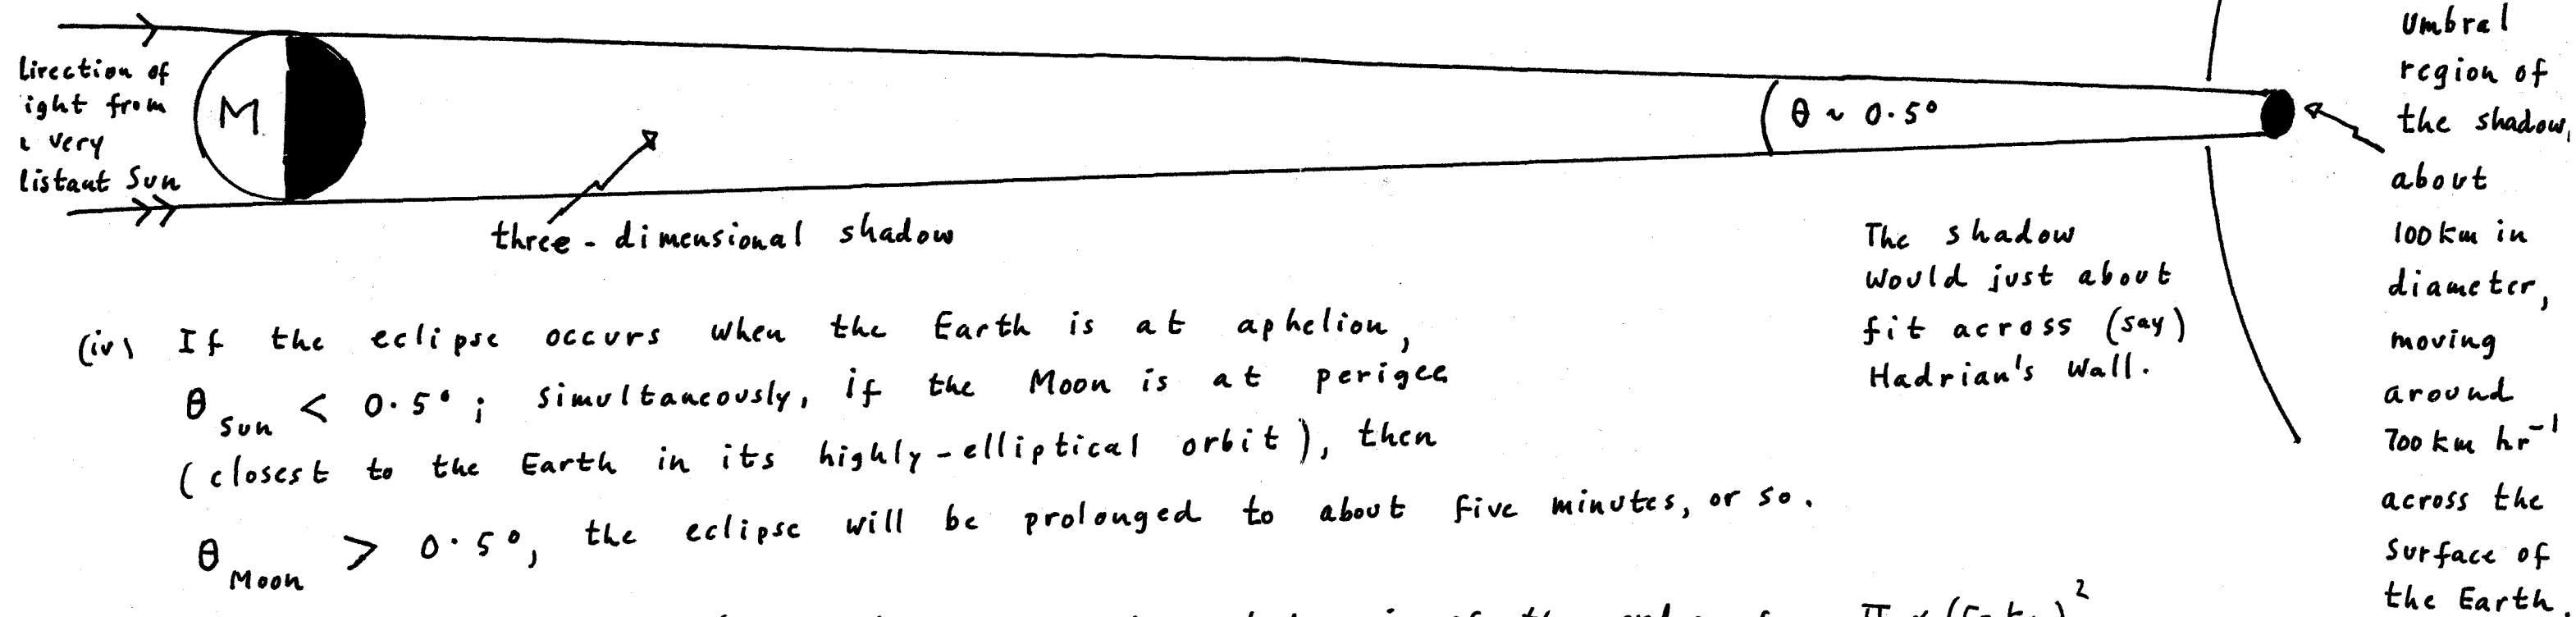 lirection of
ight from
very
listant Sun
M
three-dimensional shadow
θ ~ 0.5°
The shadow
would just about
fit across (say)
Hadrian's Wall.
Umbral
region of
the shadow,
about
100 km in
diameter,
moving
around
700 km hr⁻¹
across the
surface of
the Earth.
(iv) If the eclipse occurs when the Earth is at aphelion,
θ Sun < 0.5°; simultaneously, if the Moon is at perigee
(closest to the Earth in its highly-elliptical orbit), then
θ Moon > 0.5°, the eclipse will be prolonged to about five minutes, or so.